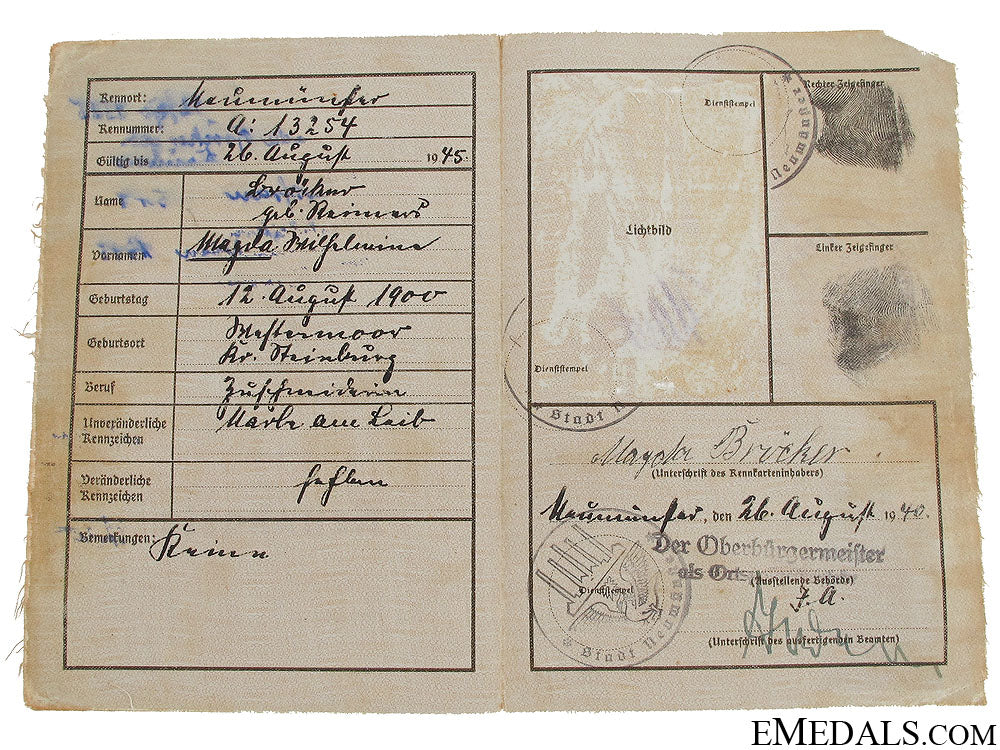 Kennort: Neumünster
Kennnummer: A: 13254
Gültig bis 26. August 1945.
Name Bröcker
geb. Reimers
Vornamen Magda Wilhelmine
Geburtstag 12. August 1900
Geburtsort Westermoor
Kr. Steinburg
Beruf Zuschneiderin
Unveränderliche
Kennzeichen
Narbe am Leib
Veränderliche
Kennzeichen
fehlen
Bemerkungen: Keine
Dienststempel
Neumünster
Rechter Zeigefinger
Lichtbild
Linker Zeigefinger
Dienststempel
* Stadt N
Magda Bröcker
(Unterschrift des Kennkarteninhabers)
Neumünster, den 26. August 1940.
Der Oberbürgermeister
als Orts
(Ausstellende Behörde)
J. A.
Dienststempel
* Stadt Neumünster
(Unterschrift des ausfertigenden Beamten)
EMEDALS.COM